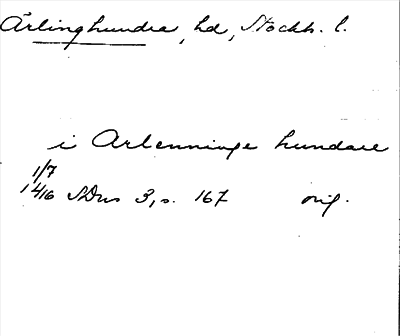 Ärlinghundra, hd, Stockh. l.
i Arlenninge hundare
1/7
1416 SDns 3, s. 167 orig.